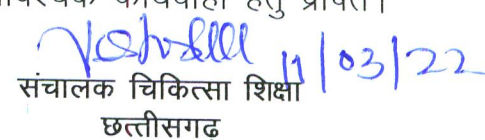 आवश्यक कार्यवाही हेतु प्रेषित।
11/03/22
संचालक चिकित्सा शिक्षा
छत्तीसगढ़